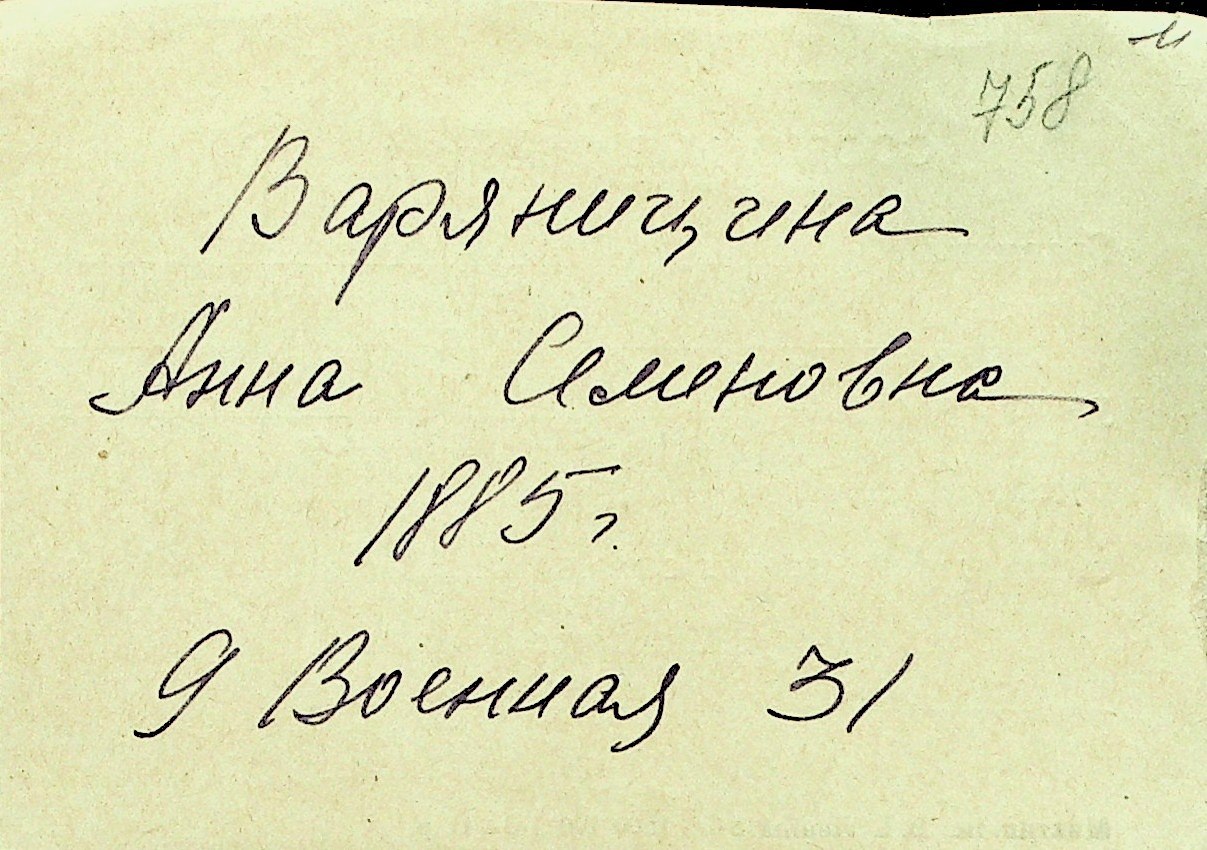 758
Варяницина
Анна Семеновна
1885 г.
9 Военная 31